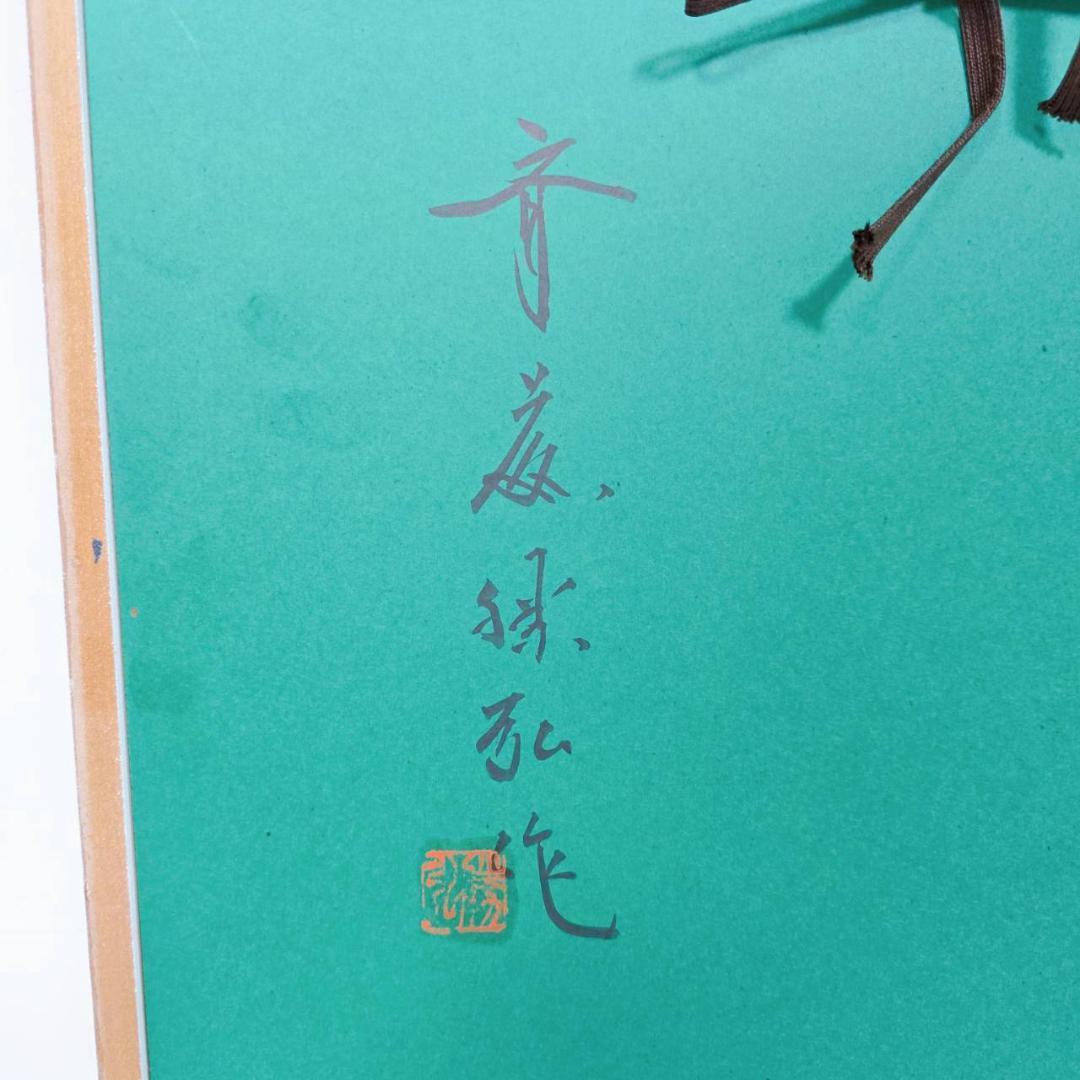 斉藤勝弘作